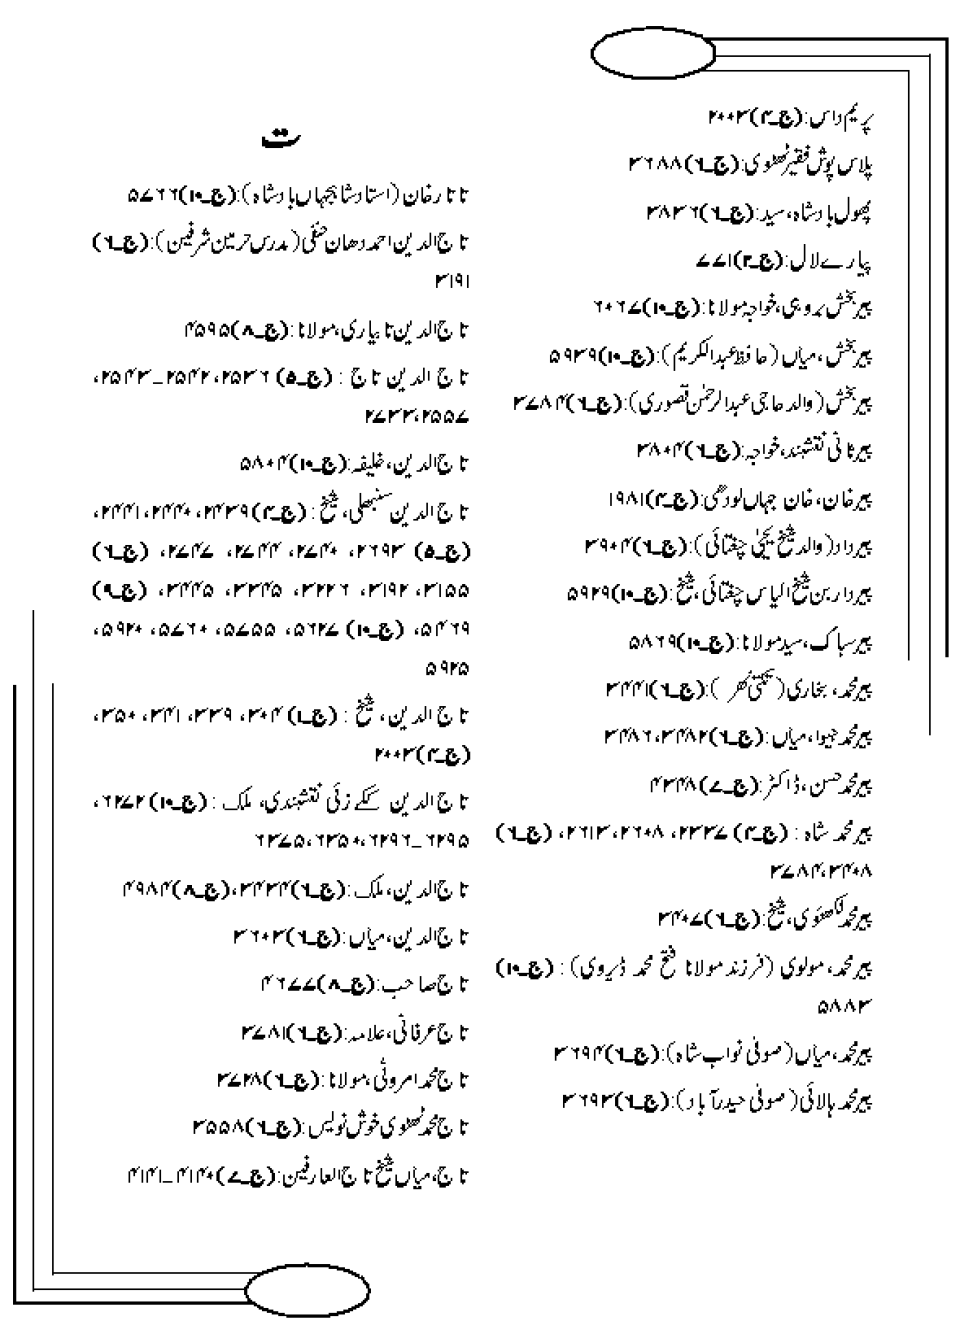 پریم داس:(ج۔۴)۲۰۰۳
پلاس پوش فقیر ٹھٹوی:(ج۔۶)۳۶۸۸
پھول بادشاہ، سید:(ج۔۶)۳۸۳۶
پیارے لال:(ج۔۲)۷۷۱
پیر بخش بروہی، خواجہ مولانا:(ج۔۱۰)۶۰۶۷
پیر بخش، میاں (حافظ عبدالکریم):(ج۔۱۰)۵۹۳۹
پیر بخش (والد حاجی عبدالرحمٰن قصوری):(ج۔۶)۳۷۸۴
پیر ثانی نقشبند، خواجہ:(ج۔۶)۳۸۰۴
پیر خان، خان جہاں لودھی:(ج۔۴)۱۹۸۱
پیر داد (والد شیخ یحییٰ چغتائی):(ج۔۶)۳۹۰۴
پیر دار بن شیخ الیاس چغتائی، شیخ:(ج۔۱۰)۵۹۲۹
پیر سباک، سید مولانا:(ج۔۱۰)۵۸۶۹
پیر محمد، بخاری ( ):(ج۔۶)۳۴۴۱
پیر محمد جیوا، میاں:(ج۔۶)۳۴۸۲، ۳۴۸۶
پیر محمد حسن، ڈاکٹر:(ج۔۷)۴۳۴۸
پیر محمد شاہ : (ج۔۴) ۲۳۳۷، ۲۶۰۸، ۲۶۱۳، (ج۔۶)
۳۴۰۸، ۳۷۸۴
پیر محمد لکھنوی، شیخ:(ج۔۶)۳۴۰۷
پیر محمد، مولوی (فرزند مولانا فتح محمد ڈیروی) : (ج۔۱۰)
۵۸۸۳
پیر محمد، میاں (صوفی نواب شاہ):(ج۔۶)۳۶۹۴
پیر محمد ہالائی (صوفی حیدرآباد):(ج۔۶)۳۶۹۳
ت
تاتار خان (استاد شاہجہاں بادشاہ):(ج۔۱۰)۵۷۶۶
تاج الدین احمد دھان حنفی (مدرس حرمین شرفین):(ج۔۶)
۳۱۹۱
تاج الدین تابیاری، مولانا:(ج۔۸)۴۵۹۵
تاج الدین تاج : (ج۔۵) ۲۵۳۶، ۲۵۴۲۔۲۵۴۳،
۲۵۵۷، ۲۷۳۳
تاج الدین، خلیفہ:(ج۔۱۰)۵۸۰۴
تاج الدین سنبھلی، شیخ : (ج۔۴)۲۴۳۹، ۲۴۴۰، ۲۴۴۱،
(ج۔۵) ۲۶۹۳، ۲۷۴۰، ۲۷۴۴، ۲۷۴۷، (ج۔۶)
۳۱۵۵، ۳۱۹۲، ۳۲۲۶، ۳۳۴۵، ۳۴۴۵، (ج۔۹)
۵۴۶۹، (ج۔۱۰) ۵۶۲۷، ۵۷۵۵، ۵۷۶۰، ۵۹۲۰،
۵۹۲۵
تاج الدین، شیخ : (ج۔۱) ۳۰۴، ۳۳۹، ۳۴۱، ۳۵۰،
(ج۔۴)۲۰۰۳
تاج الدین ککے زئی نقشبندی، ملک : (ج۔۱۰) ۶۲۷۲،
۶۲۹۵۔۶۲۹۶، ۶۳۵۰، ۶۳۷۵
تاج الدین، ملک:(ج۔۶)۳۴۳۴، (ج۔۸)۴۹۸۴
تاج الدین، میاں:(ج۔۶)۳۶۰۳
تاج صاحب:(ج۔۸)۴۶۷۷
تاج عرفانی، علامہ:(ج۔۶)۳۷۸۱
تاج محمد امروٹی، مولانا:(ج۔۶)۳۷۲۸
تاج محمد ٹھٹوی خوش نویس:(ج۔۶)۳۵۵۸
تاج، میاں شیخ تاج العارفین:(ج۔۷)۴۱۴۰۔۴۱۴۱